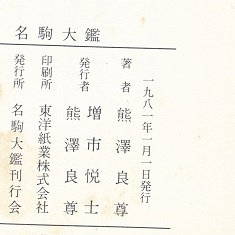 名駒大鑑
一九八一年一月一日発行
著者 熊澤良尊
発行者 増市悦士
熊澤良尊
印刷所 東洋紙業株式会社
発行所 名駒大鑑刊行会